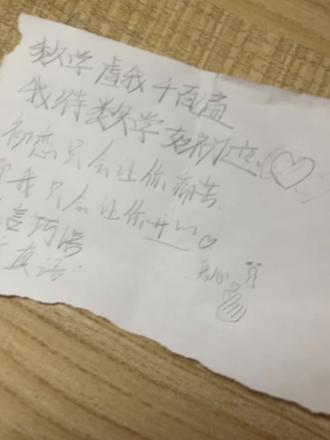 数学虐我千百遍
我待数学如初恋
初恋只会让你痛苦
而我只会让你开心
言
真话